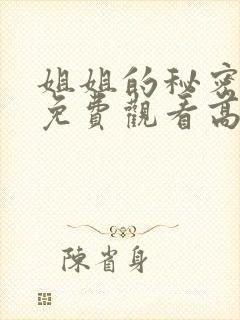 姐姐的秘密
免費觀看高
陳省身